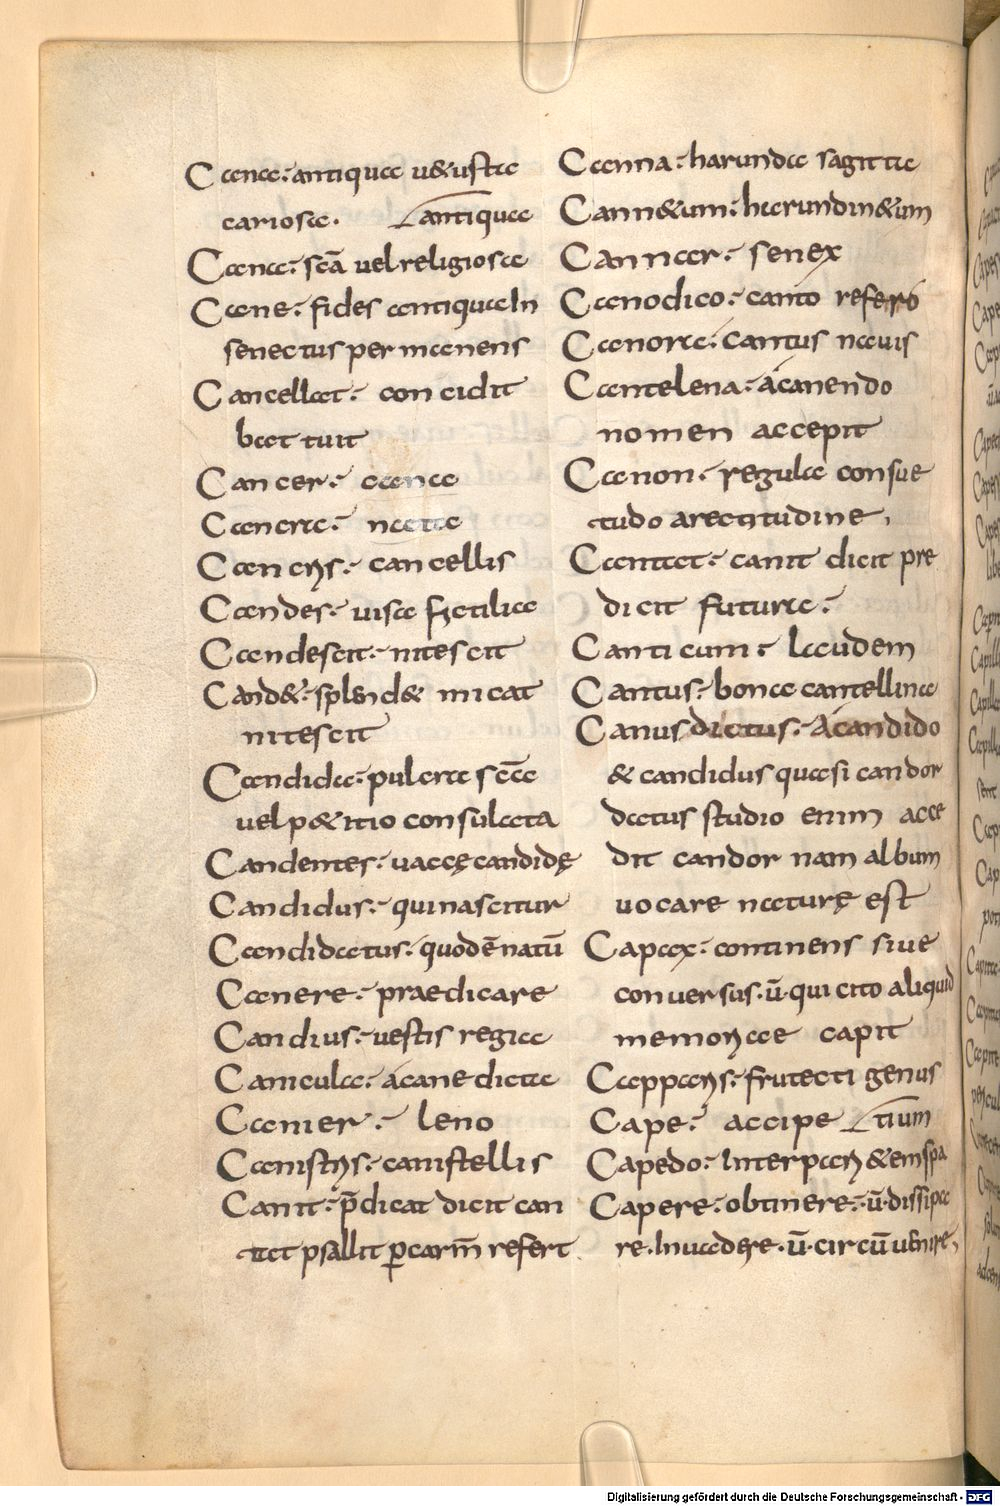 Cana: antiqua u&usta
cariosa. antiqua
Cana: scā vel religiosa
Cane: fides antiqua In
senectus permanens
Cancellat: concidit
battuit
Cancer: cance
Canera: nata
Cancris: cancellis
Candes: visa fictilia
Candescit: nitescit
Cand&: splend& micat
nitescit
Candida: pulcra scāa
vel p&itio consulata
Candentes: vaccę candidę
Candidus: qui nascitur
Candidatus: quod ē natū
Canere: praedicare
Candius: vestis regia
Canicula: á cane dicta
Canier: leno
Canistris: canistellis
Canit: p̄dicat dicit can
tat psallit p carm̄ refert
Canna: harunda sagitta
Cann&um: harundin&um
Cannar: senex
Canodico: canto refero
Canora: cantus navis
Cantelena: á canendo
nomen accepit
Canon: regula consue
tudo a rectitudine,
Cantat: canit dicit pre
dicit futura:
Canticum: laudem
Cantus: bona cantellina
Canus dictus: Á candido
& candidus quasi candor
datus studio enim acce
dit candor nam album
vocare naturę est
Capax: continens sive
conversus. ū. qui cito aliquid
memoriae capit
Capparis: frutecti genus
Cape: accipe tium
Capedo: Interpari&em spa
Capere: obtinere: ū. dissipa
re. Invadere. ū. circūvenire,
Digitalisierung gefördert durch die Deutsche Forschungsgemeinschaft - DFG